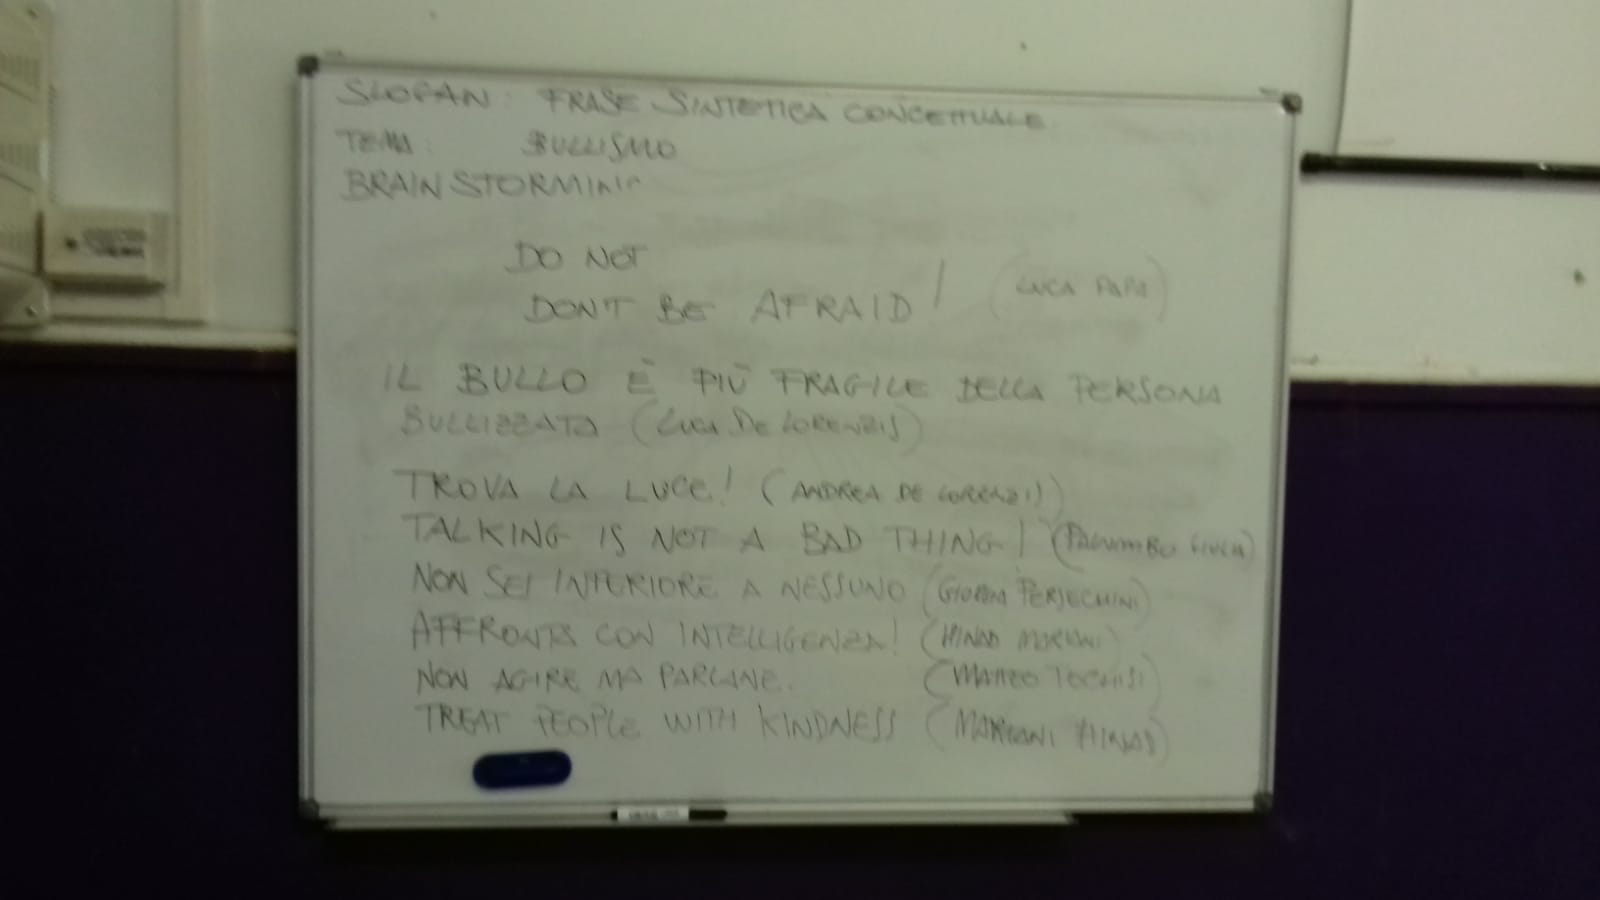 SLOGAN: FRASE SINTETICA CONCETTUALE.
TEMA: BULLISMO
BRAIN STORMING
DO NOT
DON'T BE AFRAID! (LUCA PAPA)
IL BULLO È PIÙ FRAGILE DELLA PERSONA
BULLIZZATA (LUCA DE LORENZIS)
TROVA LA LUCE! (ANDREA DE LORENZI)
TALKING IS NOT A BAD THING! (PALUMBO GIULIA)
NON SEI INFERIORE A NESSUNO (GIORGIA)
AFFRONTA CON INTELLIGENZA! (HINAD MARIANI)
NON AGIRE MA PARLANE. (MATTEO)
TREAT PEOPLE WITH KINDNESS (MARIANI HINAD)